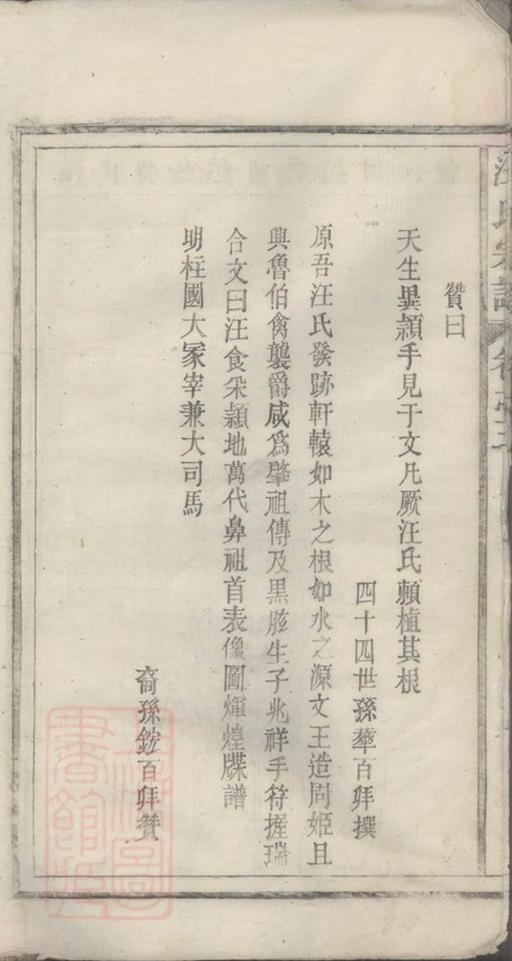 汪氏宗譜 卷之三
贊曰
天生異頴手見于文凡厥汪氏頼植其根
四十四世孫犖百拜撰
原吾汪氏發跡軒轅如木之根如水之源文王造周姬旦
興魯伯禽襲爵咸爲肇祖傳及黑肱生子兆祥手符握瑞
合文曰汪食采頴地萬代鼻祖首表像圖煇煌牒譜
明柱國大冢宰兼大司馬
裔孫鋐百拜贊
書館